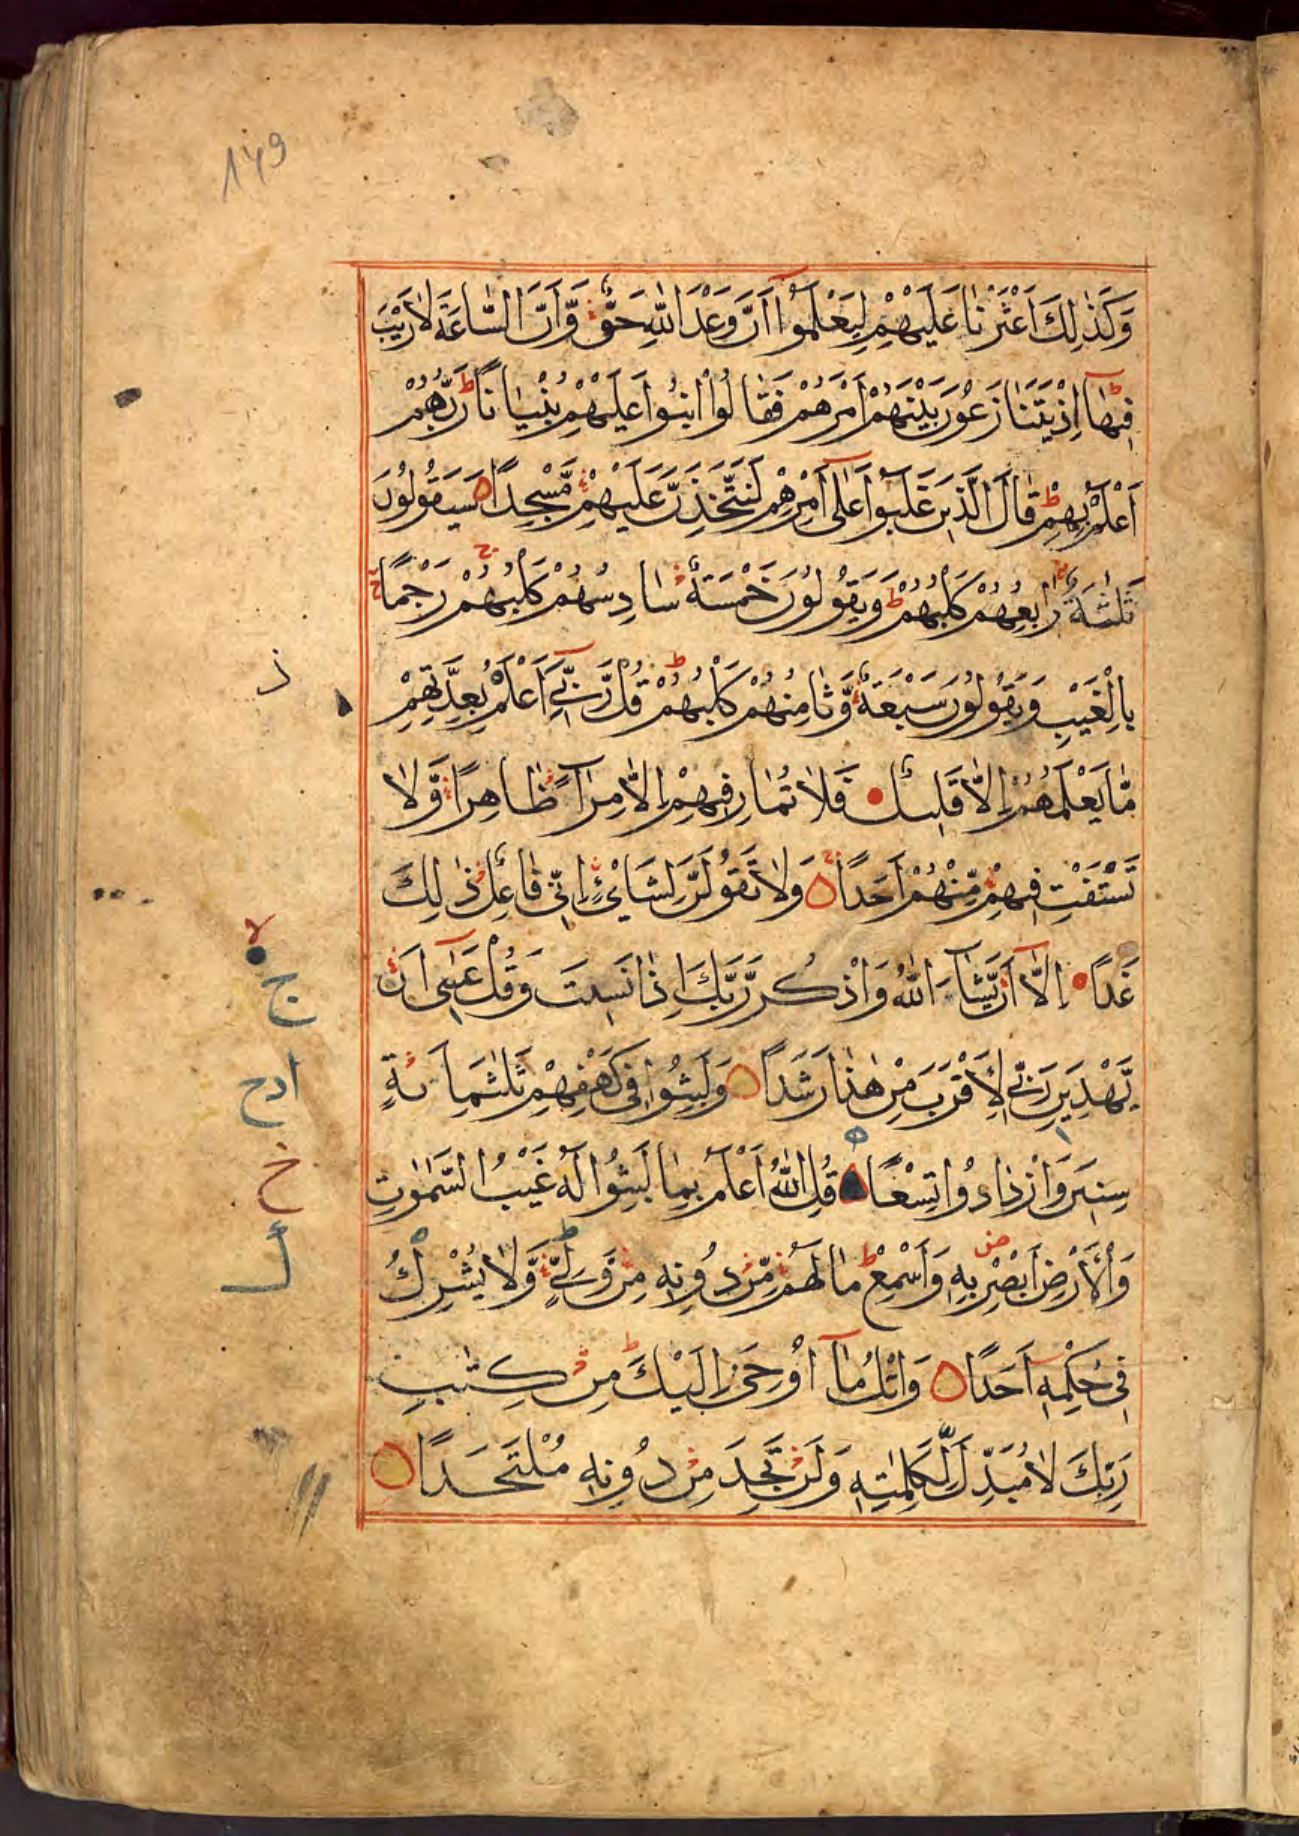 149
وَكَذٰلِكَ اَعْثَرْنَا عَلَيْهِمْ لِيَعْلَمُوٓا اَنَّ وَعْدَ اللّٰهِ حَقٌّ وَّاَنَّ السَّاعَةَ لَا رَيْبَ
فِيْهَاۚ اِذْ يَتَنَازَعُوْنَ بَيْنَهُمْ اَمْرَهُمْ فَقَالُوا ابْنُوْا عَلَيْهِمْ بُنْيَانًا ط رَبُّهُمْ
اَعْلَمُ بِهِمْ ط قَالَ الَّذِيْنَ غَلَبُوْا عَلٰٓى اَمْرِهِمْ لَنَتَّخِذَنَّ عَلَيْهِمْ مَّسْجِدًا ۝ سَيَقُوْلُوْنَ
ثَلٰثَةٌ رَّابِعُهُمْ كَلْبُهُمْ ط وَيَقُوْلُوْنَ خَمْسَةٌ سَادِسُهُمْ كَلْبُهُمْ رَجْمًا
بِالْغَيْبِ وَيَقُوْلُوْنَ سَبْعَةٌ وَّثَامِنُهُمْ كَلْبُهُمْ ط قُلْ رَّبِّيٓ اَعْلَمُ بِعِدَّتِهِمْ
ذ
مَّا يَعْلَمُهُمْ اِلَّا قَلِيْلٌ فَلَا تُمَارِ فِيْهِمْ اِلَّا مِرَآءً ظَاهِرًا وَّلَا
تَسْتَفْتِ فِيْهِمْ مِّنْهُمْ اَحَدًا ۝ وَلَا تَقُوْلَنَّ لِشَايْءٍ اِنِّيْ فَاعِلٌ ذٰلِكَ
لا
غَدًا اِلَّآ اَنْ يَّشَآءَ اللّٰهُ وَاذْكُرْ رَّبَّكَ اِذَا نَسِيْتَ وَقُلْ عَسٰٓى اَنْ
ج
يَّهْدِيَنِ رَبِّيْ لِاَقْرَبَ مِنْ هٰذَا رَشَدًا ۝ وَلَبِثُوْا فِيْ كَهْفِهِمْ ثَلٰثَمِائَةٍ
ادح
سِنِيْنَ وَازْدَادُوْا تِسْعًا ۝ قُلِ اللّٰهُ اَعْلَمُ بِمَا لَبِثُوْا لَهٗ غَيْبُ السَّمٰوٰتِ
خ
وَالْاَرْضِ اَبْصِرْ بِهٖ وَاَسْمِعْ ط مَا لَهُمْ مِّنْ دُوْنِهٖ مِنْ وَّلِيٍّ وَّلَا يُشْرِكُ
فِيْ حُكْمِهٖٓ اَحَدًا ۝ وَاتْلُ مَآ اُوْحِيَ اِلَيْكَ مِنْ كِتٰبِ
رَبِّكَ لَا مُبَدِّلَ لِكَلِمٰتِهٖ وَلَنْ تَجِدَ مِنْ دُوْنِهٖ مُلْتَحَدًا ۝